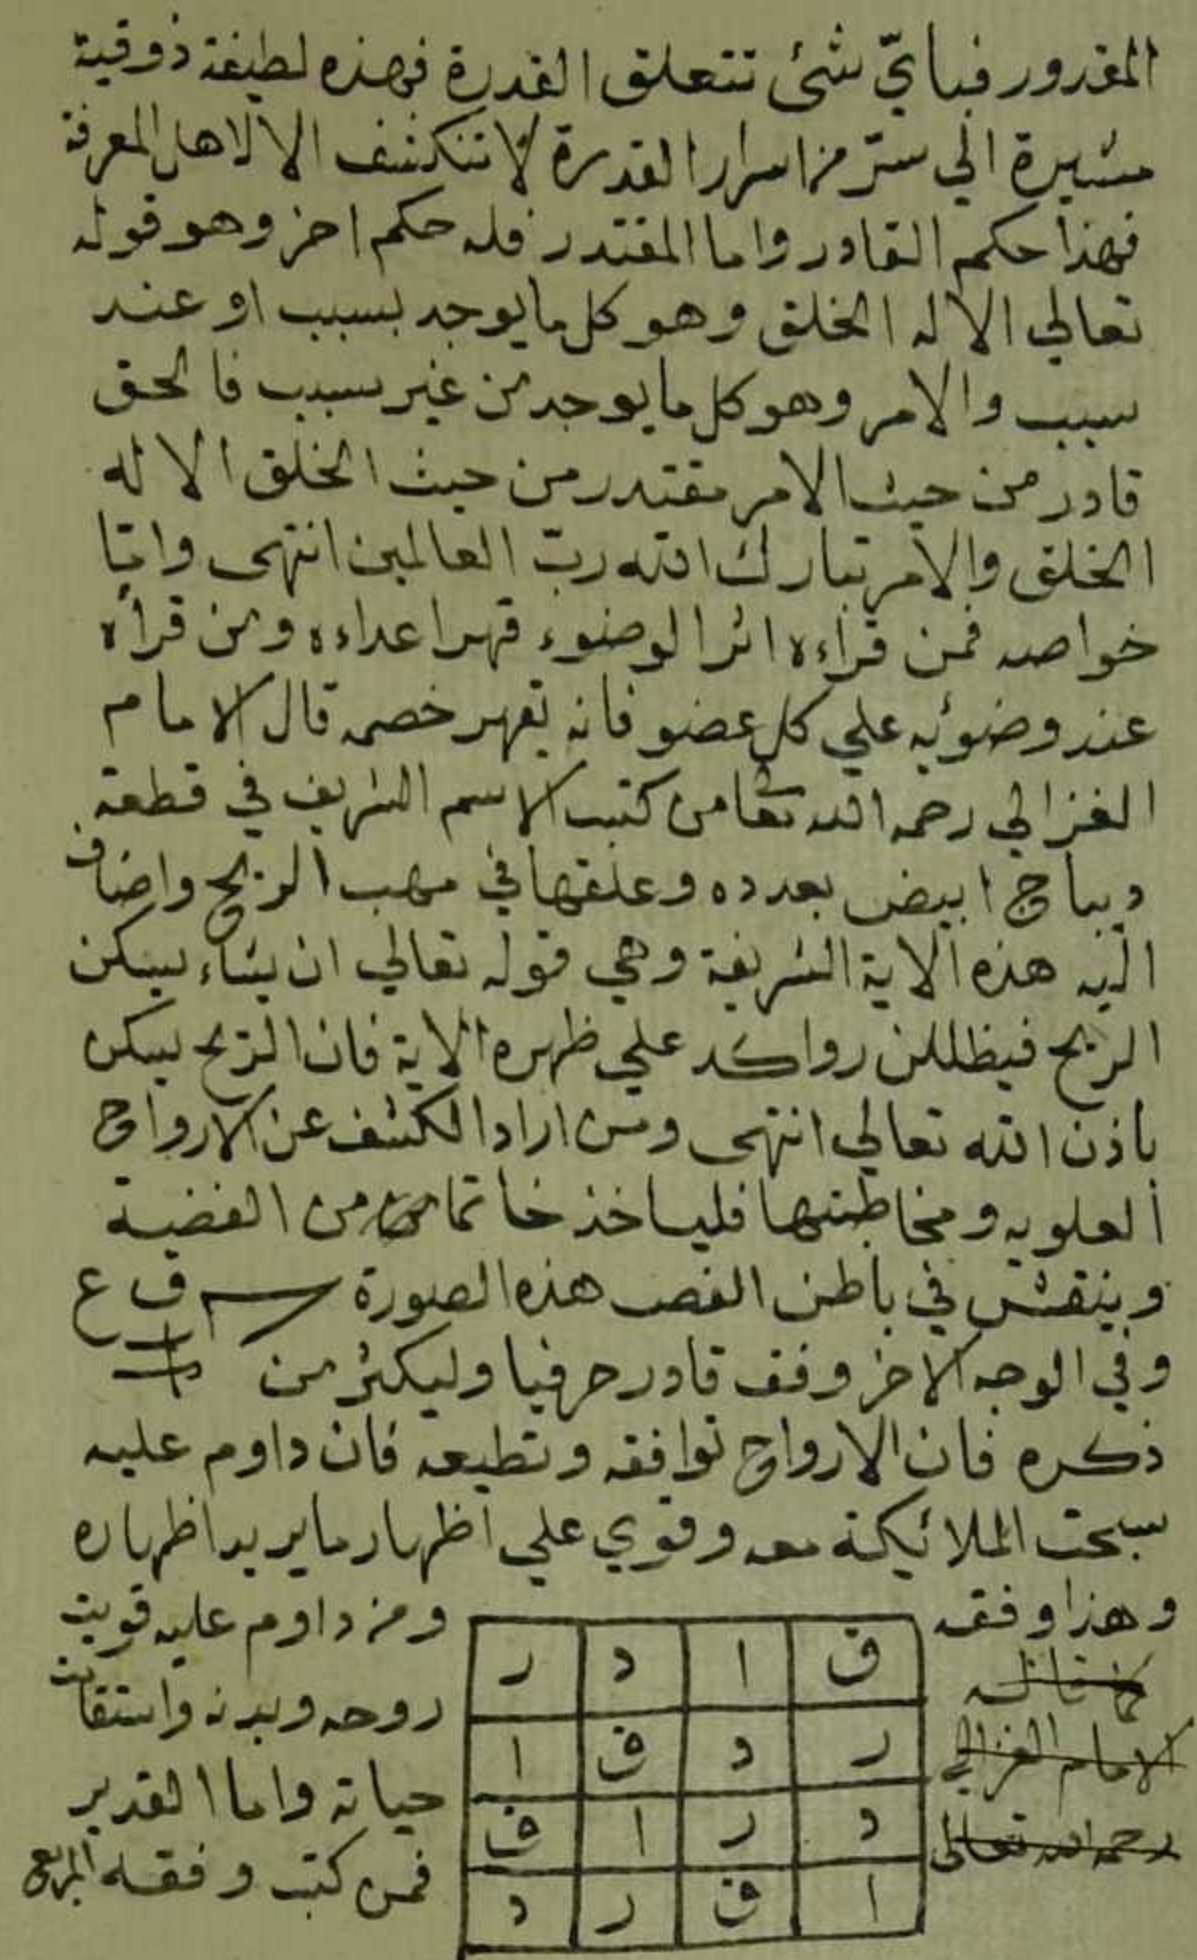 المقدور فباىّ شئى تتعلق القدرة فهذه لطيفة ذوقية
مشيرة الي سرّ من اسرار القدرة لا تنكشف الا لاهل المعرفة
فهذا حكم القادر واما المقتدر فله حكم اخر وهو قوله
تعالي الا له الخلق وهو كل ما يوجد بسبب او عند
سبب والامر وهو كل ما يوجد من غير سبب فالحق
قادر من حيث الامر مقتدر من حيث الخلق الا له
الخلق والامر تبارك الله ربّ العالمين انتهى وامّا
خواصه فمن قراءه اثر الوضوء قهر اعداءه ومن قراه
عند وضوئه علي كل عضو فانه يقهر خصمه قال الامام
الغزالي رحمه الله تعا من كتب الاسم الشريف في قطعة
ديباج ابيض بعدده وعلقها في مهب الريح واضاف
اليه هذه الاية الشريفة وهي قوله تعالي ان يشاء يسكن
الريح فيظللن رواكد علي ظهره الاية فان الريح يسكن
باذن الله تعالي انتهى ومن اراد الكشف عن الارواح
العلويه ومخاطبتها فلياخذ خاتما من الفضية
وينقش في باطن الفص هذه الصورة ف ع
وفي الوجه الاخر وفق قادر حرفيا وليكثر من
ذكره فان الارواح توافقه وتطيعه فان داوم عليه
سبحت الملائيكة معه وقوي علي اظهار ما يريد اظهاره
وهذا وفقه
الامام الغزالي
رحمه الله تعالى
ق ا د ر
ر د ق ا
د ر ا ق
ا ق ر د
ومن داوم عليه قويت
روحه وبدنه واستقامت
حياته واما القدير
فمن كتب وفقه المربع